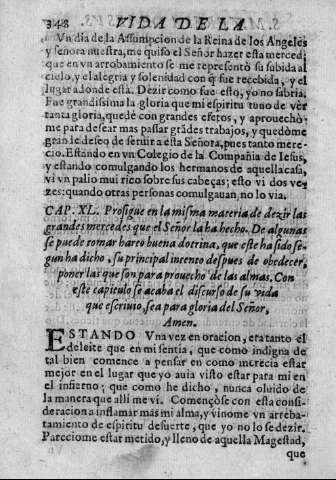 348 VIDA DE LA
Vn dia de la Assumpcion de la Reina de los Angeles
y señora nuestra, me quiso el Señor hazer esta merced;
que en vn arrobamiento se me representò su subida al
cielo, y el alegria y solenidad con q̃ fue recebida, y el
lugar adonde està. Dezir como fue esto, yo no sabria.
Fue grandissima la gloria que mi espiritu tuuo de ver
tanta gloria, quedè con grandes efetos, y aprouechò-
me para desear mas passar grãdes trabajos, y quedòme
gran le deseo de seruir a esta Señora, pues tanto mere-
cio. Estando en vn Colegio de la Compañia de Iesus,
y estando comulgando los hermanos de aquella casa,
vi vn palio mui rico sobre sus cabeças; esto vi dos ve-
zes: quando otras personas comulgauan, no lo via.
CAP. XL. Prosigue en la misma materia de dezir las
grandes mercedes que el Señor la ha hecho. De algunas
se puede tomar harto buena dotrina, que este ha sido se-
gun ha dicho, su principal intento despues de obedecer,
poner las que son para prouecho de las almas. Con
este capitulo se acaba el discurso de su vida
que escriuio, sea para gloria del Señor,
Amen.
ESTANDO Vna vez en oracion, era tanto el
deleite que en mi sentia, que como indigna de
tal bien comence a pensar en como merecia estar
mejor en el lugar que yo auia visto estar para mi en
el infierno; que como he dicho, nunca oluido de
la manera que alli me vi. Començòse con esta consi-
deracion a inflamar mas mi alma, y vinome vn arreba-
tamiento de espiritu desuerte, que yo no lo se dezir.
Pareciome estar metido, y lleno de aquella Magestad,
que